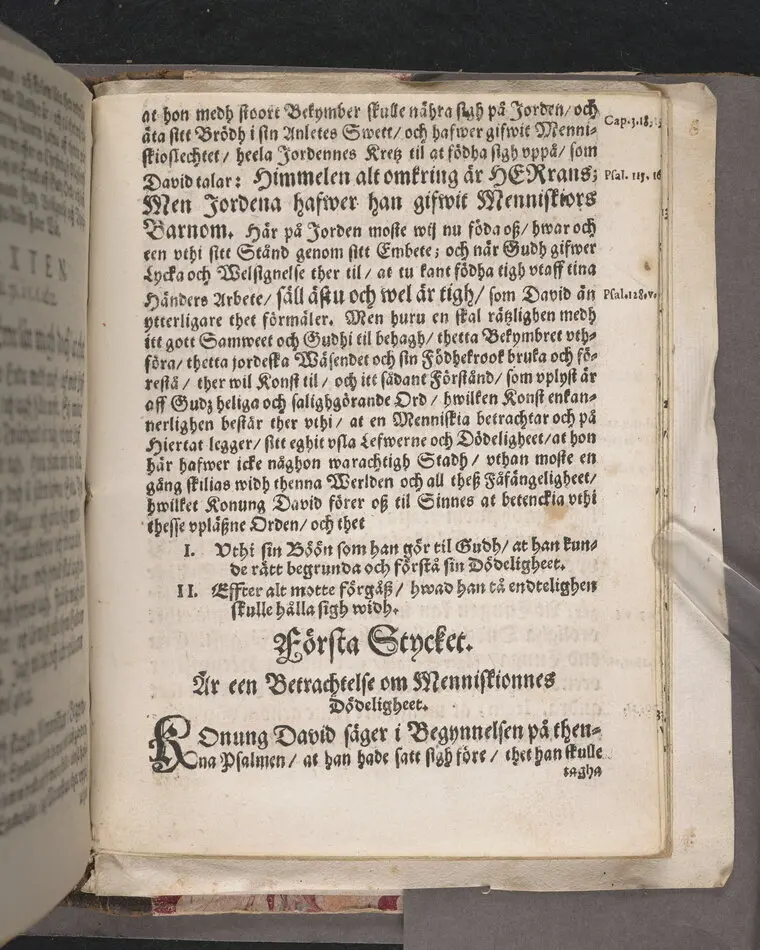 at hon medh stoort Bekymber skulle nähra sigh på Jorden/ och
äta sitt Brödh i sin Anletes Swett/ och hafwer gifwit Menni-
skioslechtet/ heela Jordennes Kretz til at födha sigh vppå/ som
David talar: Himmelen alt omkring är HERrans;
Men Jordena hafwer han gifwit Menniskiors
Barnom. Här på Jorden moste wij nu föda oß/ hwar och
een vthi sitt Stånd genom sitt Embete; och när Gudh gifwer
Lycka och Welsignelse ther til/ at tu kant födha tigh vtaff tina
Händers Arbete/ säll ästu och wel är tigh/ som David än
ytterligare thet förmäler. Men huru en skal rätzlighen medh
itt gott Samweet och Gudhi til behagh/ thetta Bekymbret vth-
föra/ thetta jordeska Wäsendet och sin Födhekrook bruka och fö-
restå/ ther wil Konst til/ och itt sådant Förstånd/ som vplyst är
aff Gudz heliga och salighgörande Ord/ hwilken Konst enkan-
nerlighen består ther vthi/ at en Menniskia betrachtar och på
Hiertat legger/ sitt eghit vsla Lefwerne och Dödeligheet/ at hon
här hafwer icke någhon warachtigh Stadh/ vthan moste en
gång skilias widh thenna Werlden och all theß Fåfängeligheet/
hwilket Konung David förer oß til Sinnes at betenckia vthi
thesse vpläßne Orden/ och thet
I. Vthi sin Böön som han gör til Gudh/ at han kun-
de rätt begrunda och förstå sin Dödeligheet.
II. Effter alt motte förgåß/ hwad han tå endtelighen
skulle hålla sigh widh.
Första Stycket.
Är een Betrachtelse om Menniskionnes
Dödeligheet.
KOnung David säger i Begynnelsen på then-
na Psalmen/ at han hade satt sigh före/ thet han skulle
tagha
Cap. 3. 18,
Psal. 115. 16
Psal. 128. v.